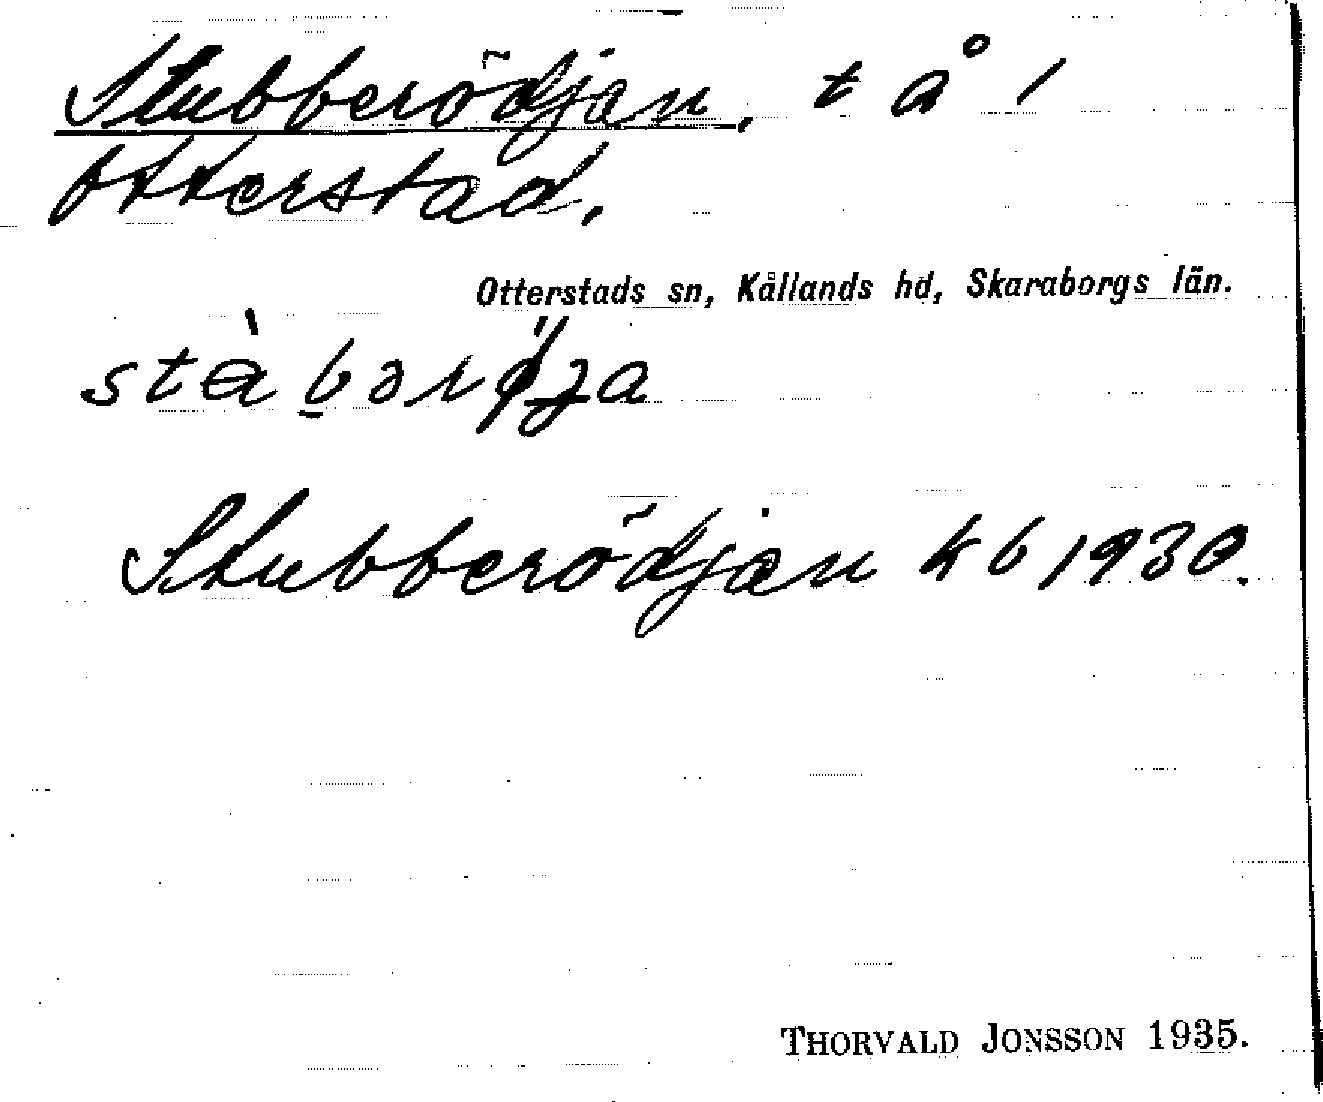 Stubberödjan, t å i
Otterstad,
Otterstads sn, Kållands hd, Skaraborgs län.
Stubberödjan kb 1930.
THORVALD JONSSON 1935.